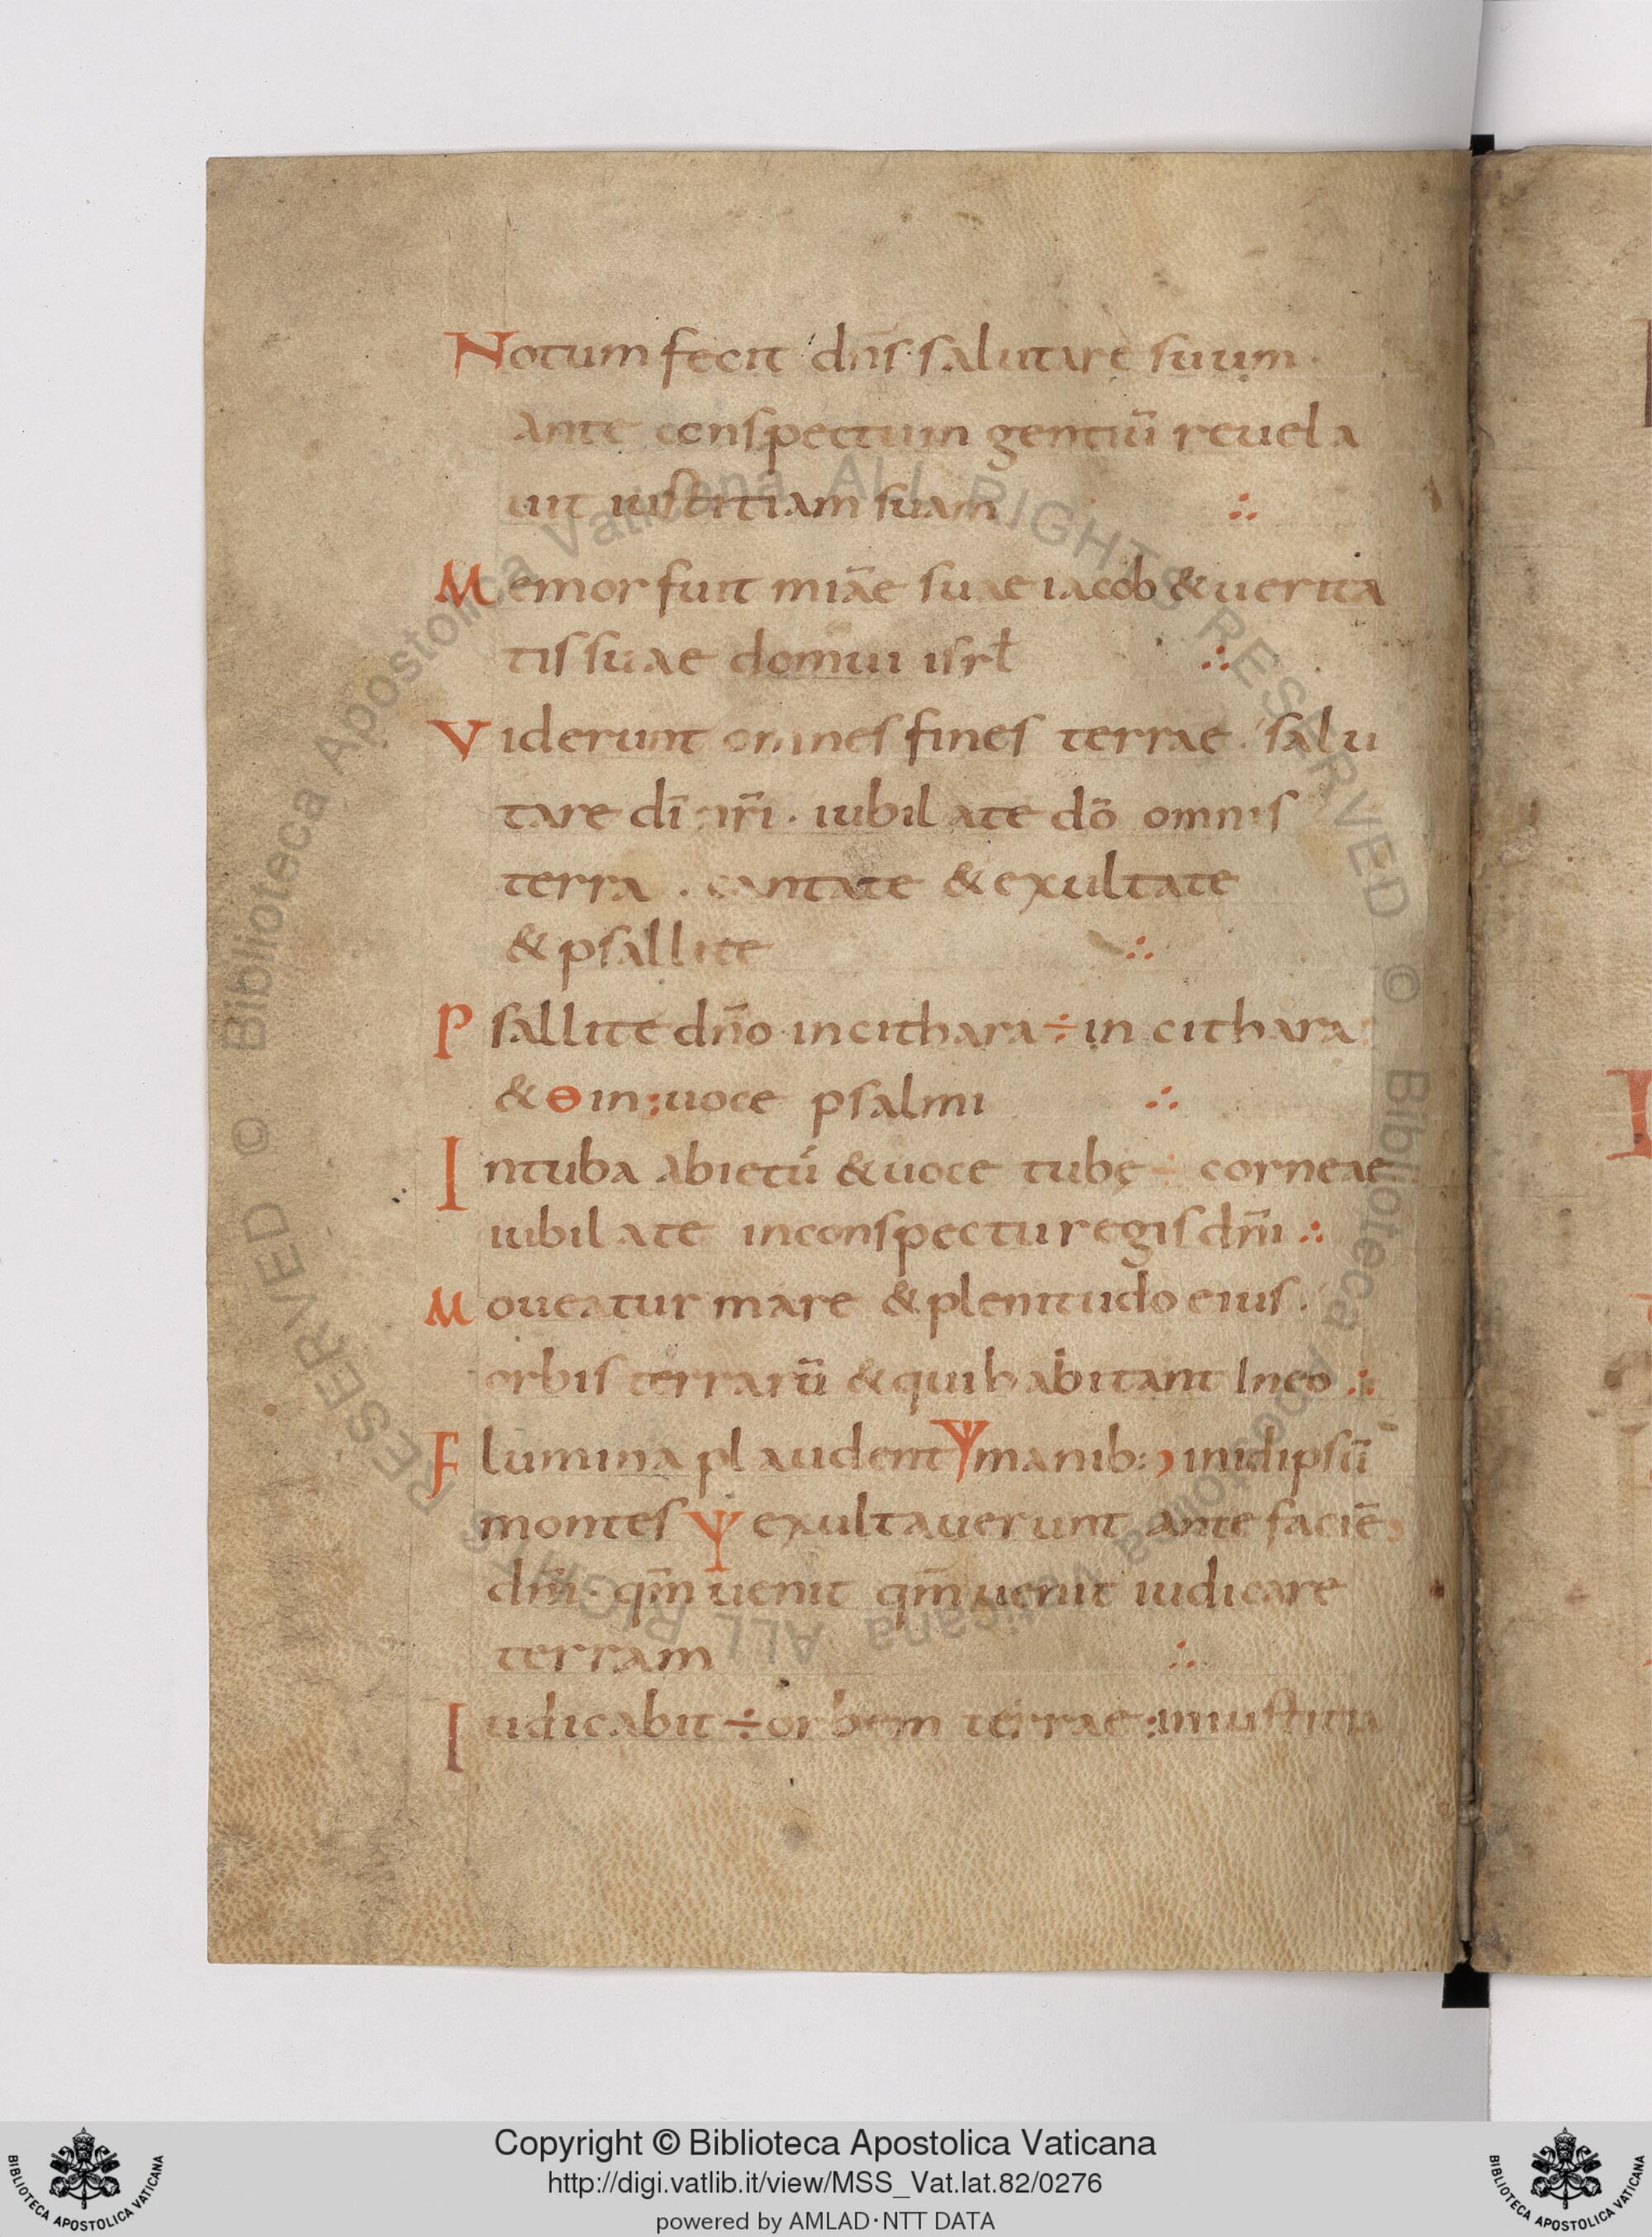 Notum fecit dn̄s salutare suum·
ante conspectum gentiū reuela
uit iustitiam suam ∴
Memor fuit miāe suae iacob & uerita
tis suae domui isrł ∴
Viderunt omnes fines terrae· salu
tare dī nr̄i· iubilate dō omnis
terra· cantate & exultate
& psallite ∴
Psallite dn̄o in cithara ÷ in cithara:
& ɵ in: uoce psalmi ∴
In tuba abietū & uoce tubę ÷ corneae
iubilate in conspectu regis dn̄i ∴
Moueatur mare & plenitudo eius·
orbis terrarū & qui habitant In eo ∴
Flumina plaudent Ψ manib: inidipsū
montes Ψ exultauerunt ante faciē
dn̄i· qm̄ uenit qm̄ uenit iudicare
terram ∴
Iudicabit ÷ orbem terrae: in iustitia
© Biblioteca Apostolica Vaticana ALL RIGHTS RESERVED © Biblioteca Apostolica Vaticana ALL RIGHTS RESERVED
Copyright © Biblioteca Apostolica Vaticana
http://digi.vatlib.it/view/MSS_Vat.lat.82/0276
powered by AMLAD·NTT DATA
BIBLIOTECA APOSTOLICA VATICANA
BIBLIOTECA APOSTOLICA VATICANA